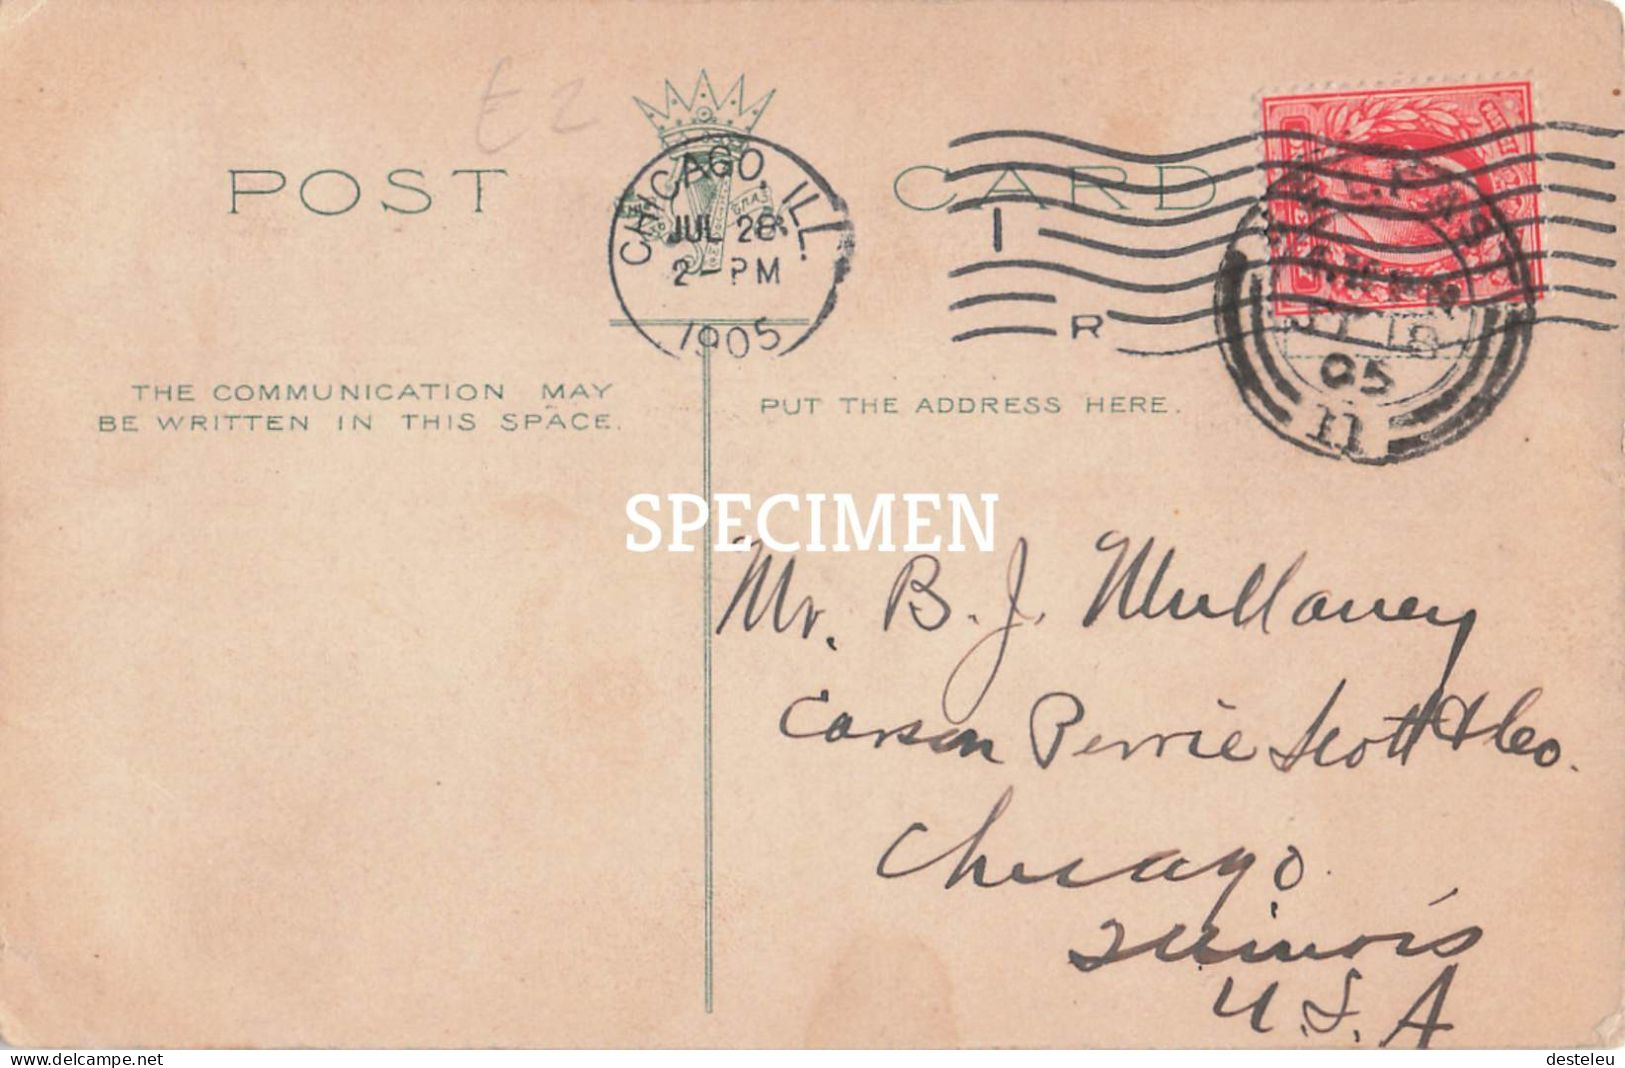 £2
POST CARD
CHICAGO, ILL.
JUL 28
2 - PM
1905
I
R
18
05
11
THE COMMUNICATION MAY
BE WRITTEN IN THIS SPACE.
PUT THE ADDRESS HERE.
SPECIMEN
Mr. B. J. Mullaney
Carson Perrie Scott & Co.
Chicago
Illinois
U.S.A
delcampe.net
desteleu